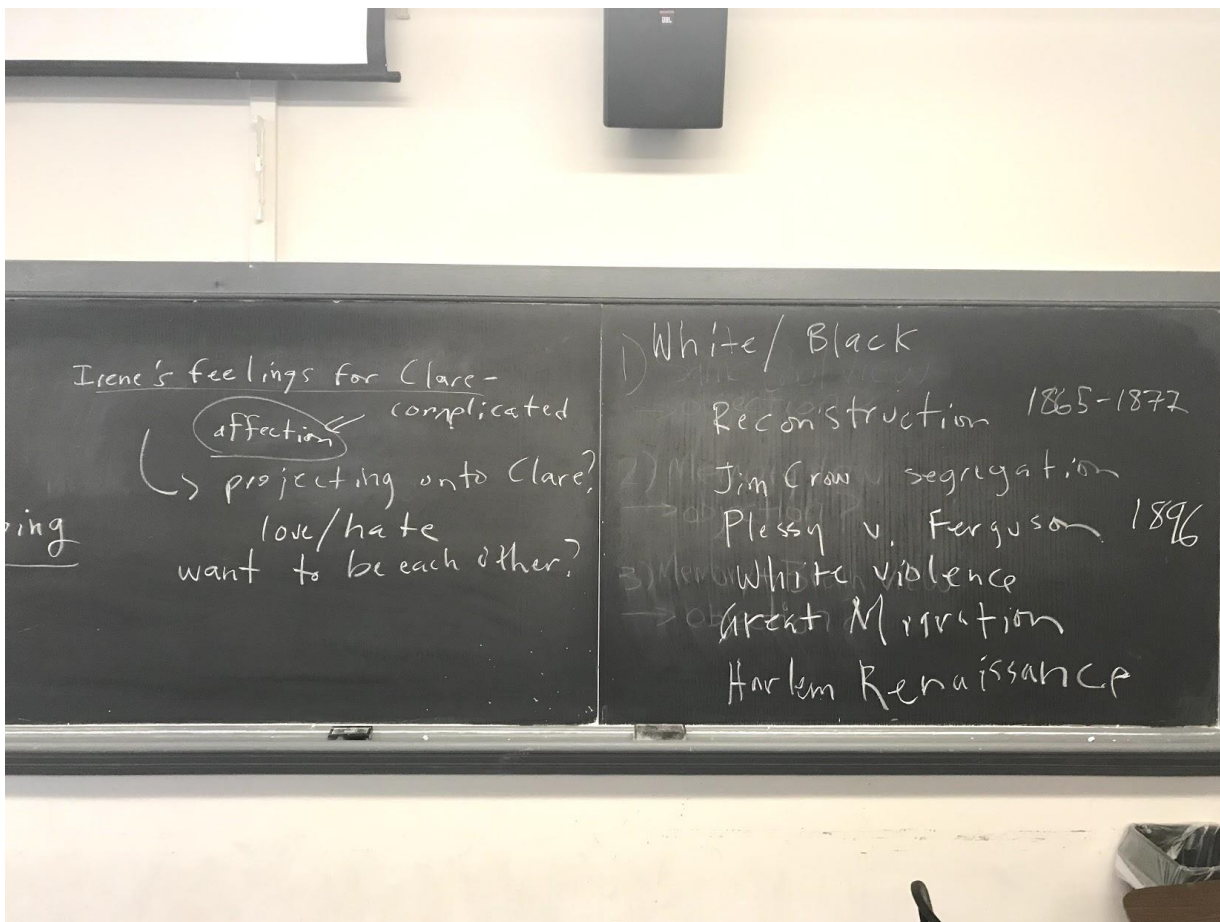 JBL
Irene's feelings for Clare -
complicated
affection
projecting onto Clare?
love/hate
want to be each other?
ing
1) White / Black
Reconstruction 1865-1877
Jim Crow segregation
Plessy v. Ferguson 1896
White violence
Great Migration
Harlem Renaissance